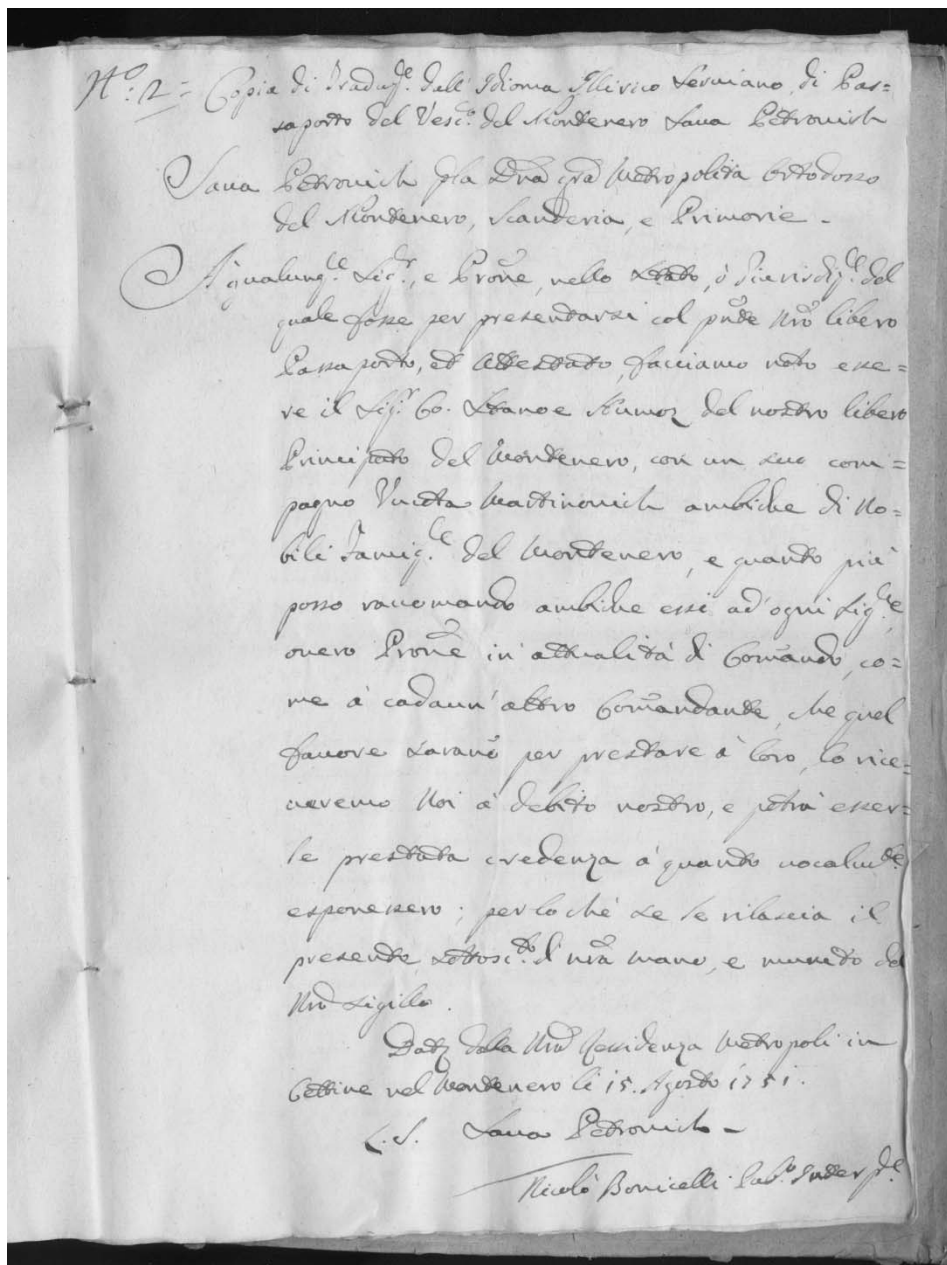 N.º 2 = Copia di Traduz.e dall' Idioma Illirico Serviano, di Pas=
saporto del Vesc.o del Montenero Sava Petrovich
Sava Petrovich p la Dna grã Metropolita Ortodosso
del Montenero, Scanderia, e Primorie -
A qualung.e Sig.r, e Prone, nello Stato, ò Giurisdiz.e del
quale fosse per presentarsi col pñte Nrõ libero
Passaporto, et Attestato, facciamo noto esse=
re il Sig.r Co. Stanoe del nostro libero
Principato del Montenero, con un suo com=
pagno Vucetta Martinovich ambidue di No=
bili Famig.e del Montenero, e quanto più
posso racomando ambidue essi ad' ogni Sig.re,
overo Prone in' attualità di Comãndo, co=
me à cadaun' altro Comãndante, che quel
favore sarano per prestare à loro, lo rice=
veremo Noi à debito nostro, e potrà esser=
le prestata credenza à quanto vocalm.te
esponessero; per lo chè se le rilascia il
presente sottosc.to di nrã mano, e munito del
Nrõ Sigillo.
Datz dalla Nrã Ressidenza Metropoli in
Cettine nel Montenero li 15. Agosto 1751.
L.S. Sava Petrovich -
Nicolò Bonicelli Pub.o Interp.e